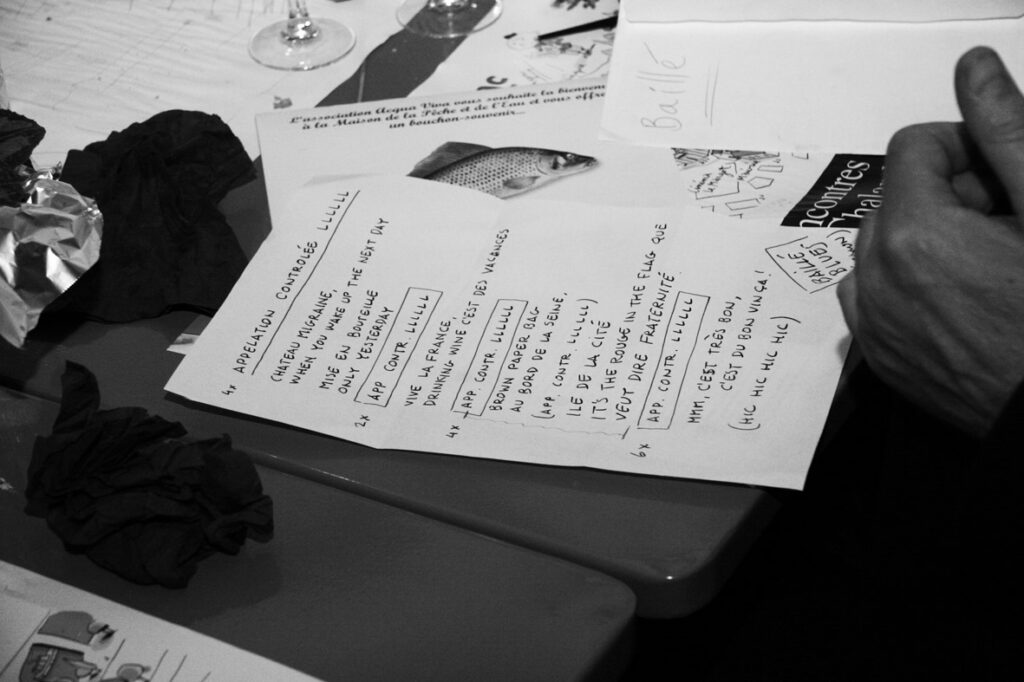 Baillé
L'association Acqua Viva vous souhaite la bienven
à la Maison de la Pêche et de l'Eau et vous offre
un bouchon-souvenir...
ncontres
Chala
BAILLÉ
BLUES
4x APPELATION CONTROLÉE LLLLLL
CHATEAU MIGRAINE,
WHEN YOU WAKE UP THE NEXT DAY
MISE EN BOUTEILLE
ONLY YESTERDAY
2x APP CONTR. LLLLLL
VIVE LA FRANCE,
DRINKING WINE C'EST DES VACANCES
4x APP. CONTR. LLLLLL
BROWN PAPER BAG
AU BORD DE LA SEINE,
(APP. CONTR. LLLLLL)
ILE DE LA CITÉ
IT'S THE ROUGE IN THE FLAG QUE
VEUT DIRE FRATERNITÉ
6x APP. CONTR. LLLLLL
MMM, C'EST TRÈS BON,
C'EST DU BON VIN ÇA!
(HIC HIC HIC HIC)